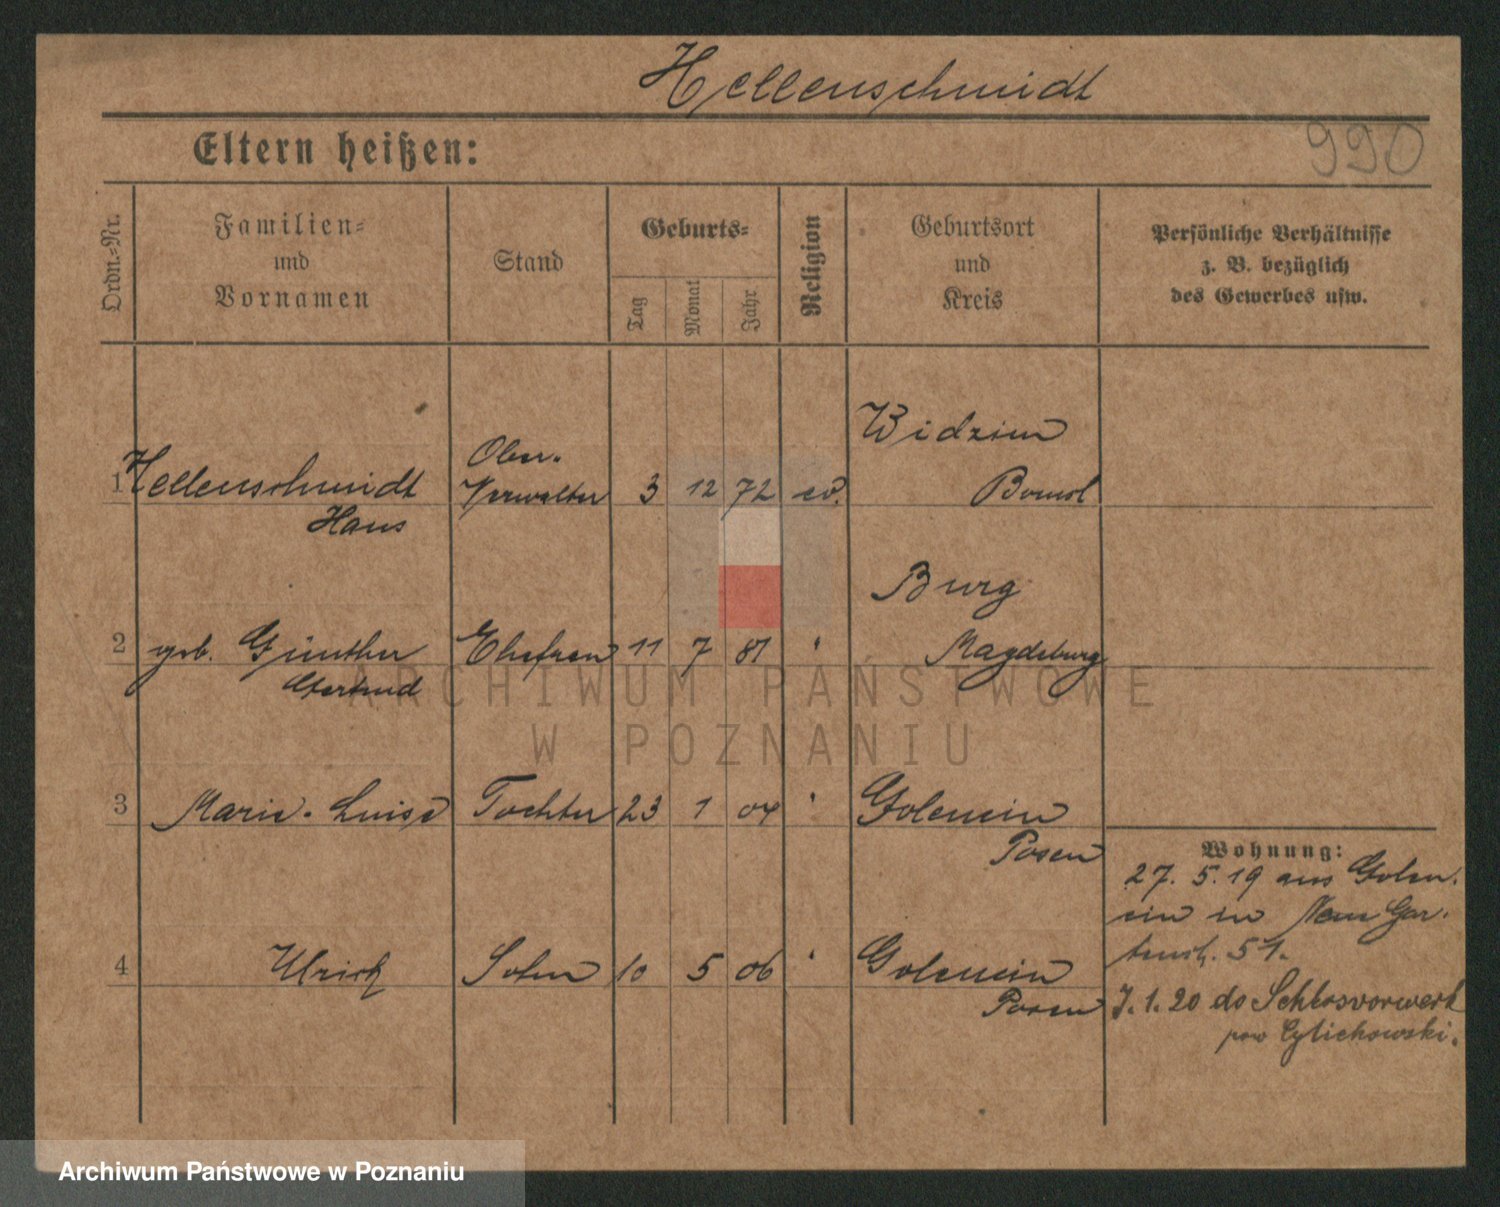 Hellenschmidt
990
Eltern heißen:
Ordn.-Nr.
Familien-
und
Vornamen
Stand
Geburts-
Tag
Monat
Jahr
Religion
Geburtsort
und
Kreis
Persönliche Verhältnisse
z. B. bezüglich
des Gewerbes usw.
Widzim
Ober-
1 Hellenschmidt Verwalter 3 12 72 ev. Bomst
Hans
Burg
2 geb. Günther Ehefrau 11 7 81 " Magdeburg
Gertrud
3 Marie-Luise Tochter 23 1 04 " Golencin
Posen
Wohnung:
27. 5. 19 aus Golen-
cin in Neue Gar-
tenstr. 51.
4 Ulrich Sohn 10 5 06 " Golencin
Posen
7. 1. 20 do Schlosvorwerk
pow Cylichowski.
ARCHIWUM PAŃSTWOWE
W POZNANIU
Archiwum Państwowe w Poznaniu